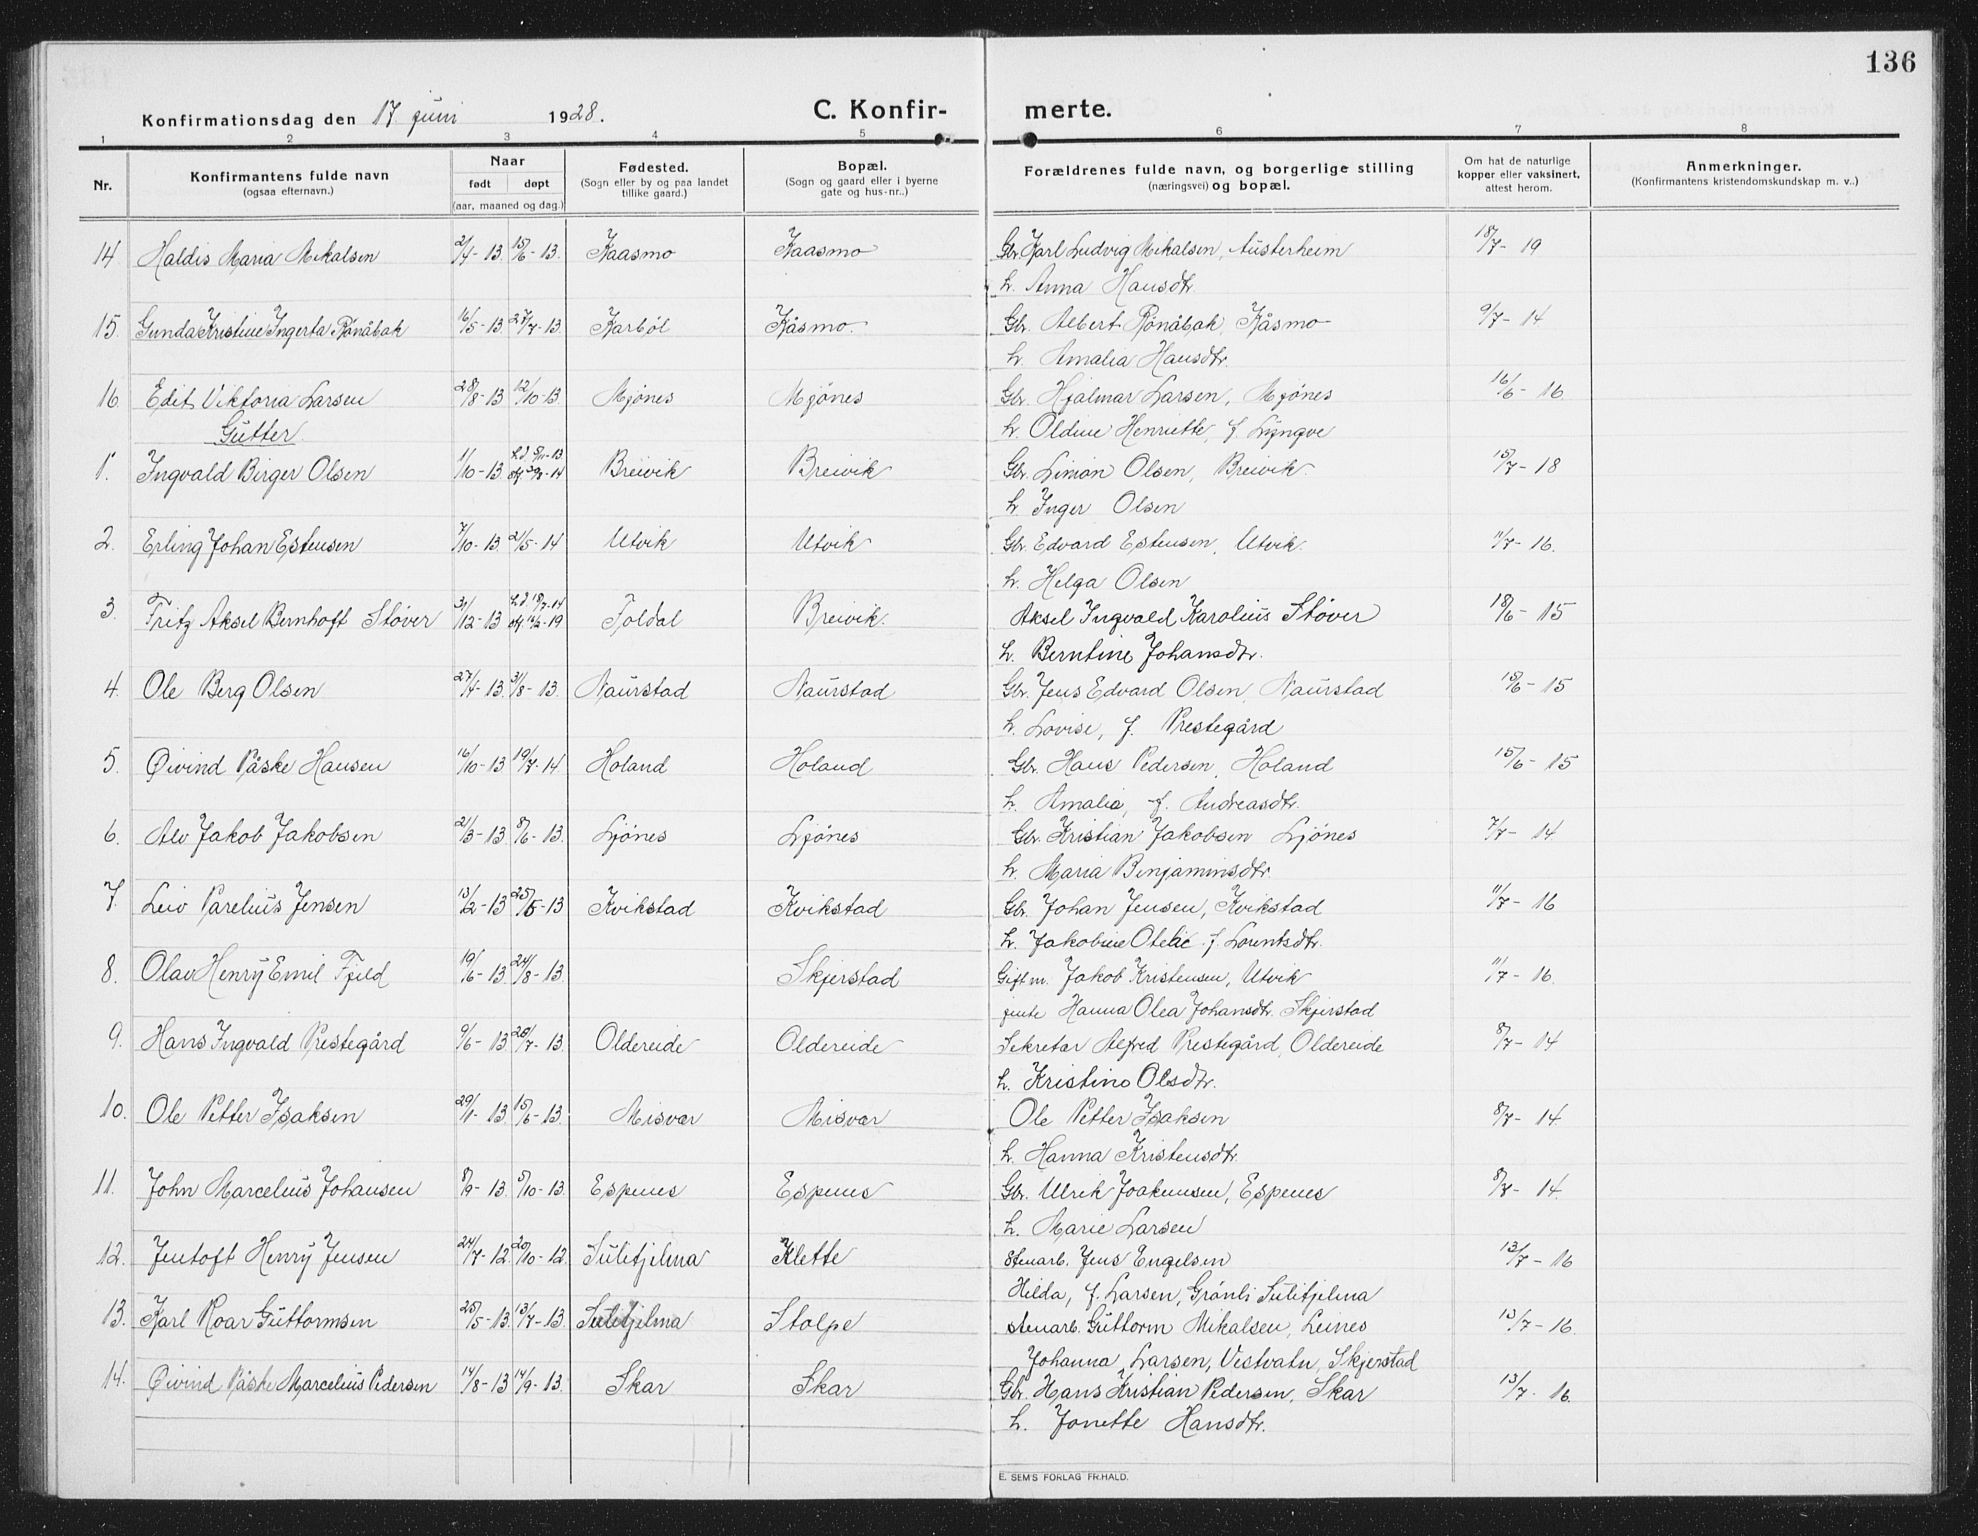 136
Konfirmationsdag den 17 juni 1928. C. Konfir- merte.
1 2 3 4 5 6 7 8
Nr. Konfirmantens fulde navn (ogsaa efternavn.) Naar født døpt (aar, maaned og dag.) Fødested. (Sogn eller by og paa landet tillike gaard.) Bopæl. (Sogn og gaard eller i byerne gate og hus-nr..) Forældrenes fulde navn, og borgerlige stilling (næringsvei) og bopæl. Om hat de naturlige kopper eller vaksinert, attest herom. Anmerkninger. (Konfirmantens kristendomskundskap m. v..)
14 Haldis Maria Mikalsen 2/4-13 15/6-13. Kaasmo Kaasmo Gbr. Karl Ludvig Mikalsen, Austerheim 18/7-19
h. Anna Hansdtr.
15. Gunda Kristine Ingerta Rønåbak 16/5-13 27/7-13 Karbøl Kåsmo. Gbr. Albert Rønåbak, Kåsmo 9/7-14
h. Amalia Hansdtr.
16. Edit Viktoria Larsen 28/8-13 12/10-13. Mjönes Mjönes Gbr. Hjalmar Larsen, Mjönes 16/6-16
Gutter. h. Oldine Henriette, f. Lyngve
1. Ingvald Birger Olsen 1/10-13. Breivik Breivik Gbr. Simon Olsen, Breivik 15/7-18
h. Inger Olsen
2. Erling Johan Estensen 7/10-13. 21/5-14 Utvik Utvik Gbr. Edvard Estensen, Utvik. 11/7-16.
h. Helga Olsen
3. Fritz Aksel Bernhoft Støver 31/12-13 Foldal Breivik. Aksel Ingvald Karolius Støver 18/6-15
h. Berntine Johansdtr.
4. Ole Berg Olsen 27/4-13. 3/8-13. Naurstad Naurstad Gbr. Jens Edvard Olsen, Naurstad 15/6-15
h. Lovise, f. Prestegård
5. Øivind Påske Hansen 16/10-13 19/7-14 Holand Holand Gbr. Hans Pedersen, Holand 15/6-15
h. Amalia, f. Andreasdtr.
6. Alv Jakob Jakobsen 21/3-13 8/6-13. Ljönes Ljönes Gbr. Kristian Jakobsen Ljönes 7/7-14
h. Maria Benjaminsdtr.
7. Leiv Parelius Jensen 13/2-13 25/5-13 Kvikstad Kvikstad Gbr. Johan Jensen, Kvikstad 11/7-16
h. Jakobine Otelie f. Lorentsdtr.
8. Olav Henry Emil Fjeld 19/6-13. 24/8-13. Skjerstad Gift m. Jakob Kristensen, Utvik 11/7-16.
jente Hanna Olea Johansdtr. Skjerstad
9. Hans Ingvald Prestegård 9/6-13 20/7-13. Oldereide Oldereide Sekretær Alfred Prestegård, Oldereide 8/7-14
h. Kristine Olsdtr.
10. Ole Petter Isaksen 29/1-13. 15/6-13. Misvær Misvær Ole Petter Isaksen 8/7-14
h. Hanna Kristensdtr.
11. John Marcelius Johansen 8/9-13. 5/10-13. Espenes Espenes Gbr. Ulrik Joakimsen, Espenes 8/7-14.
h. Marie Larsen
12. Jentoft Henry Jensen 24/7-12. 20/10-12 Sulitjelma Klette Stenarb. Jens Engelsen 13/7-16
Hilda, f. Larsen, Grønli Sulitjelma
13. Karl Roar Guttormsen 25/5-13. 13/7-13. Sulitjelma Stolpe stenarb. Guttorm Mikalsen, Leines 13/7-16.
Johanna Larsen, Vestvatn, Skjerstad
14. Øivind Påske Marcelius Pedersen 14/8-13 14/9-13. Skar Skar Gbr. Hans Kristian Pedersen, Skar 13/7-16.
h. Jonette Hansdtr.
E. SEM'S FORLAG FR.HALD.